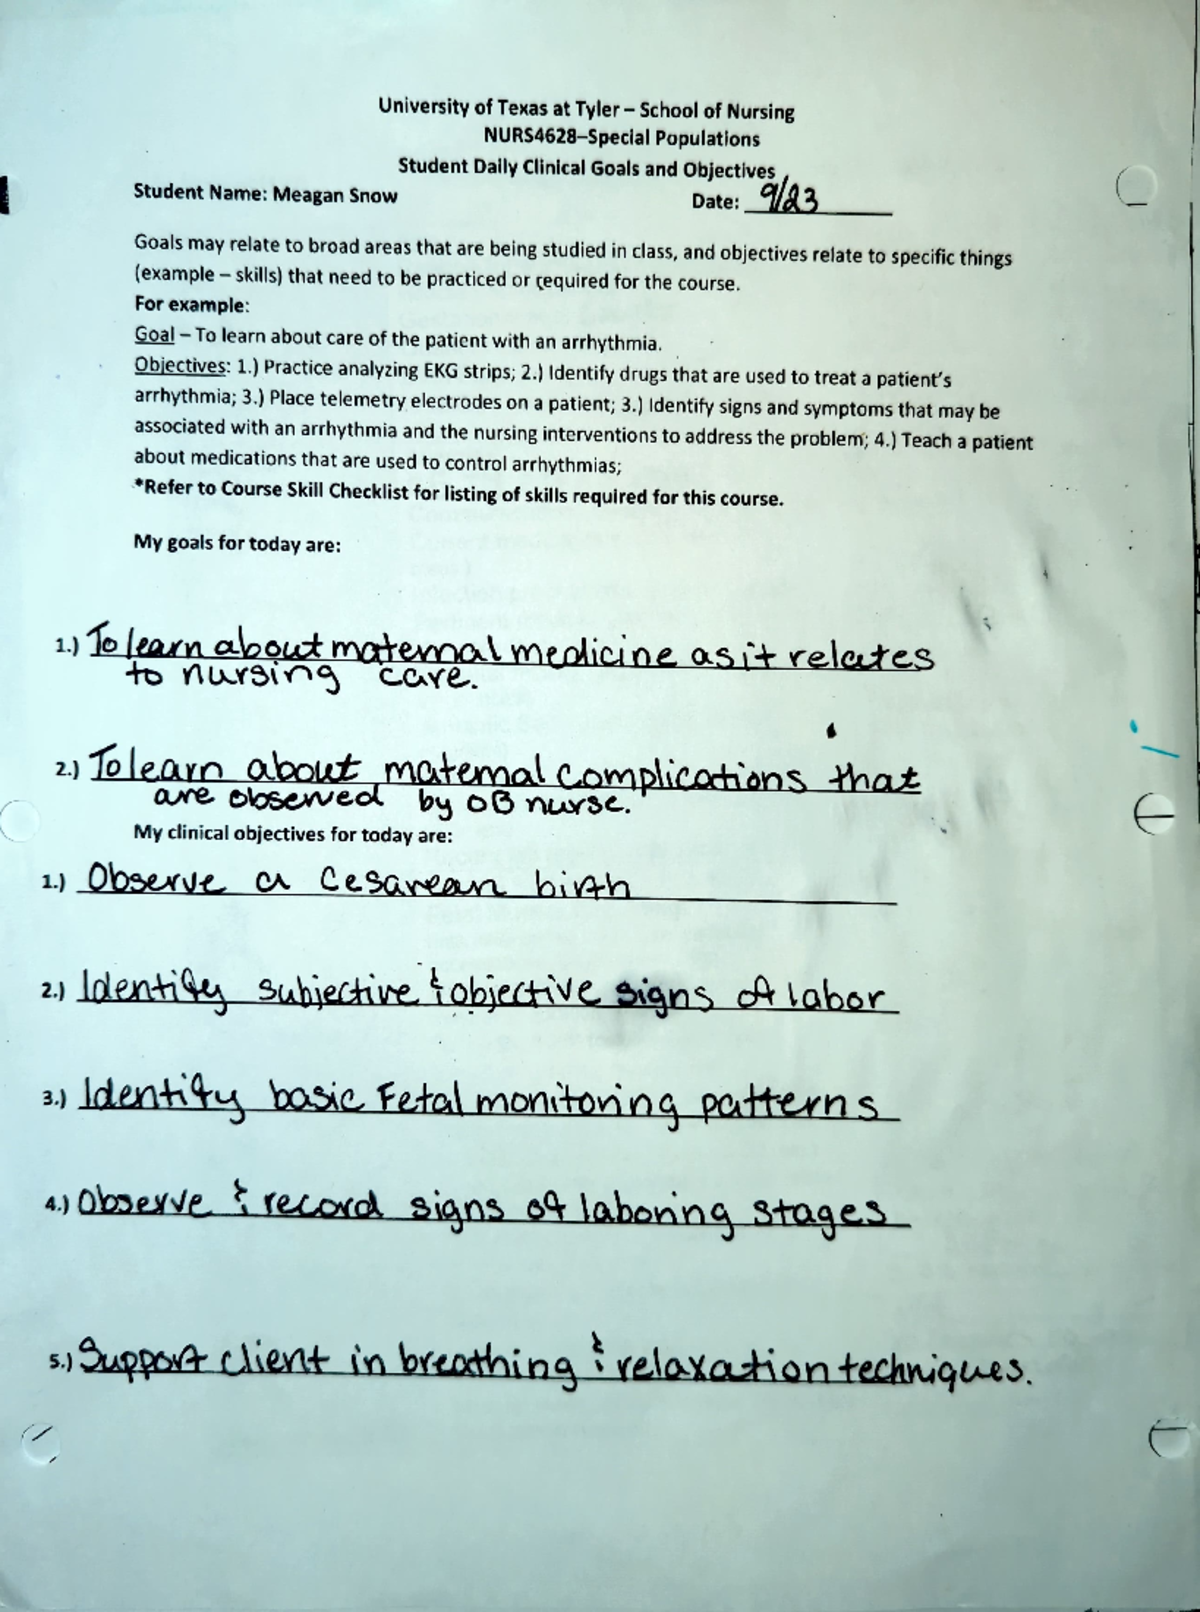 University of Texas at Tyler – School of Nursing
NURS4628–Special Populations
Student Daily Clinical Goals and Objectives
Student Name: Meagan Snow Date: 9/23
Goals may relate to broad areas that are being studied in class, and objectives relate to specific things
(example – skills) that need to be practiced or required for the course.
For example:
Goal – To learn about care of the patient with an arrhythmia.
Objectives: 1.) Practice analyzing EKG strips; 2.) Identify drugs that are used to treat a patient's
arrhythmia; 3.) Place telemetry electrodes on a patient; 3.) Identify signs and symptoms that may be
associated with an arrhythmia and the nursing interventions to address the problem; 4.) Teach a patient
about medications that are used to control arrhythmias;
*Refer to Course Skill Checklist for listing of skills required for this course.
My goals for today are:
1.) To learn about maternal medicine as it relates
to nursing care.
2.) To learn about maternal complications that
are observed by OB nurse.
My clinical objectives for today are:
1.) Observe a Cesarean birth
2.) Identify subjective & objective signs of labor
3.) Identify basic Fetal monitoring patterns
4.) Observe & record signs of laboring stages
5.) Support client in breathing & relaxation techniques.